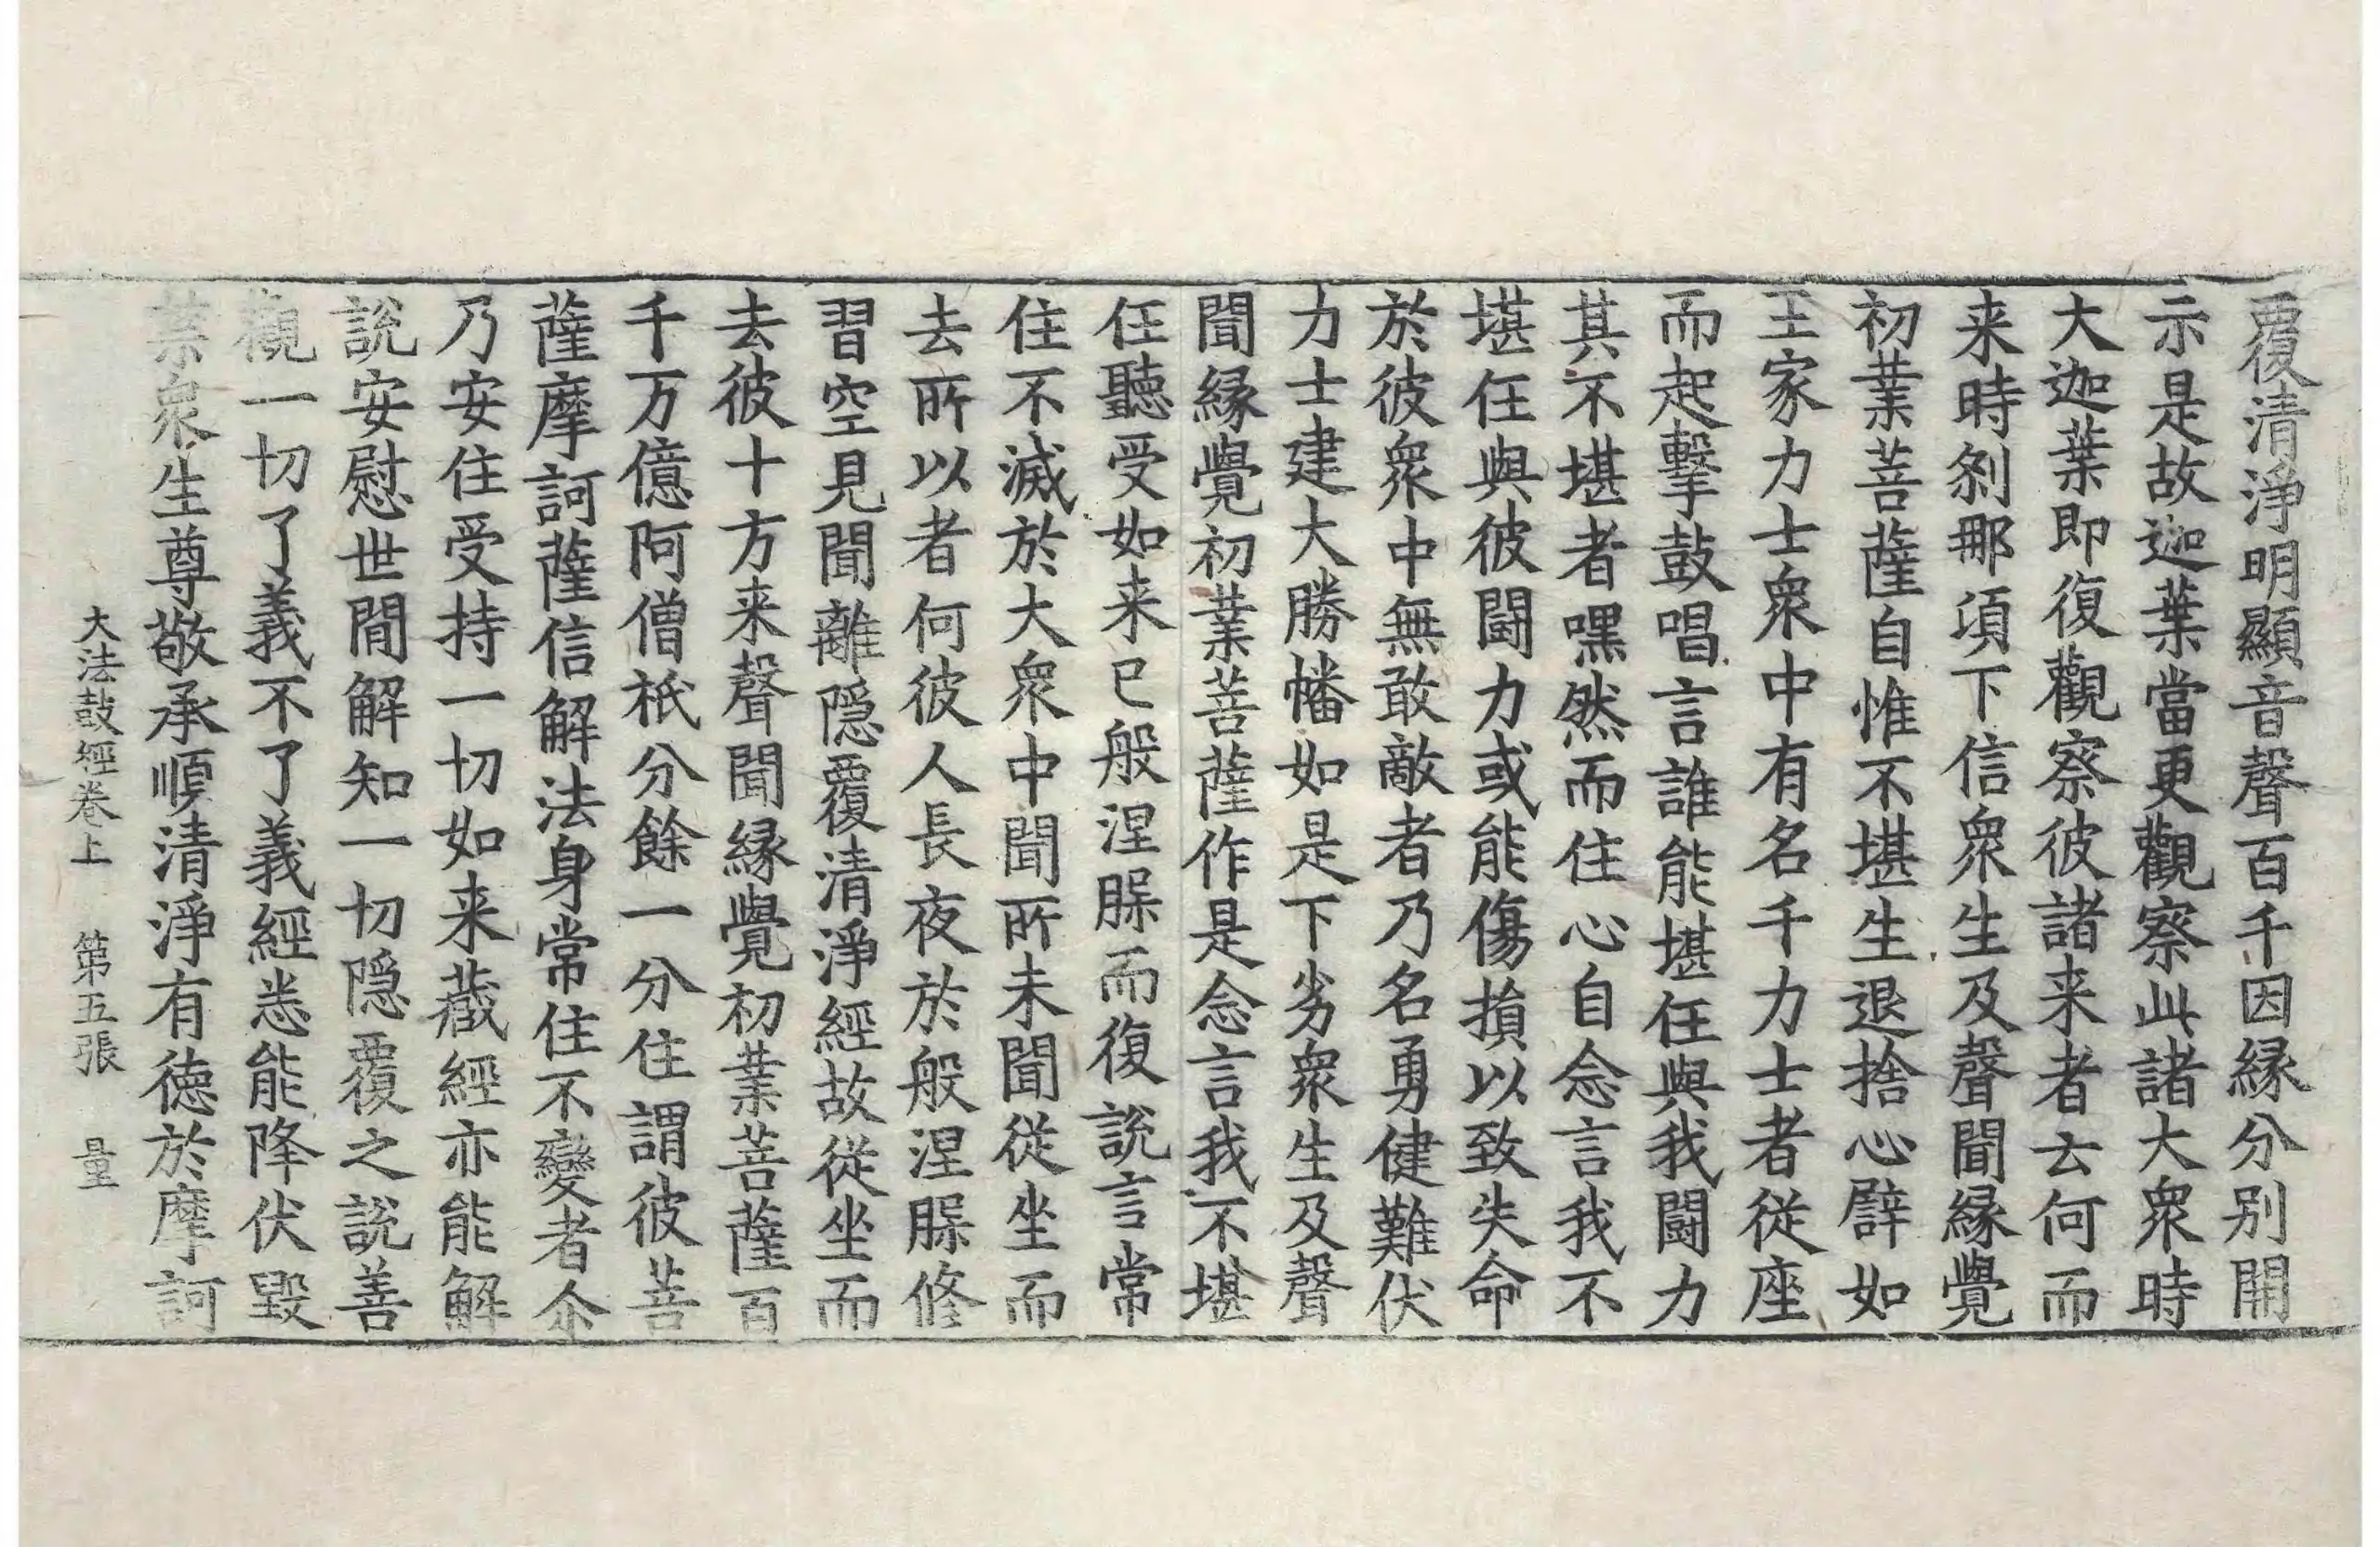 覆清淨明顯音聲百千因縁分別開
示是故迦葉當更觀察此諸大衆時
大迦葉即復觀察彼諸来者云何而
来時刹那頃下信衆生及聲聞縁覺
初業菩薩自惟不堪生退捨心譬如
王家力士衆中有名千力士者從座
而起擊鼓唱言誰能堪任與我闘力
其不堪者嘿然而住心自念言我不
堪任與彼闘力或能傷損以致失命
於彼衆中無敢敵者乃名勇健難伏
力士建大勝幡如是下劣衆生及聲
聞縁覺初業菩薩作是念言我不堪
任聽受如来已般涅槃而復說言常
住不滅於大衆中聞所未聞從坐而
去所以者何彼人長夜於般涅槃修
習空見聞離隱覆清淨經故從坐而
去彼十方来聲聞縁覺初業菩薩百
千万億阿僧祇分餘一分住謂彼菩
薩摩訶薩信解法身常住不變者尒
乃安住受持一切如来藏經亦能解
說安慰世間解知一切隱覆之說善
觀一切了義不了義經悉能降伏毀
禁衆生尊敬承順清淨有德於摩訶
大法鼓經卷上 第五張 量